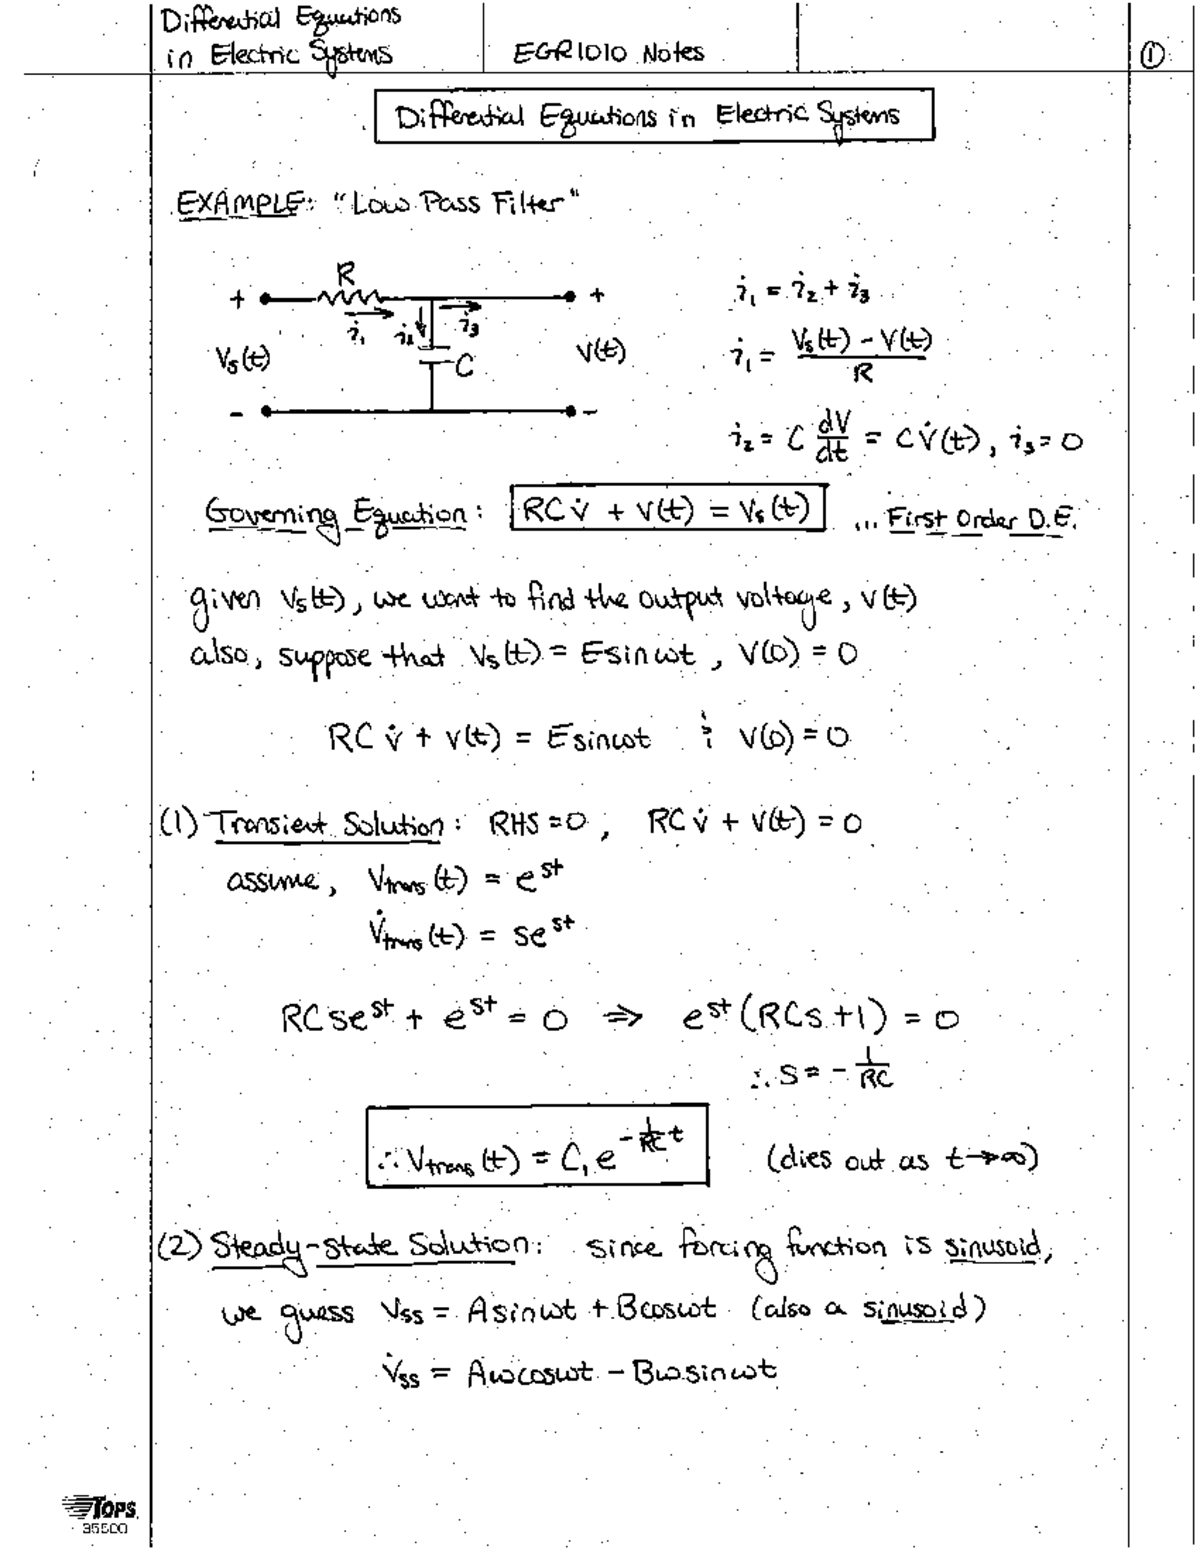 Differential Equations
in Electric Systems
EGR1010 Notes
①
Differential Equations in Electric Systems
EXAMPLE: "Low Pass Filter"
R
+ +
i₁ i₂ i₃
Vs(t) C V(t)
- -
i₁ = i₂ + i₃
i₁ = (Vs(t) - V(t)) / R
i₂ = C dV/dt = C V̇(t), i₃ = 0
Governing Equation: RC v̇ + v(t) = Vs(t) ... First Order D.E.
given Vs(t), we want to find the output voltage, v(t)
also, suppose that Vs(t) = E sin ωt, V(0) = 0
RC v̇ + v(t) = E sin ωt ; v(0) = 0
(1) Transient Solution: RHS = 0, RC v̇ + v(t) = 0
assume, Vtrans(t) = e^st
V̇trans(t) = se^st
RCse^st + e^st = 0 ⇒ e^st (RCs + 1) = 0
∴ s = - 1/RC
∴ Vtrans(t) = C₁ e^(-1/RC t) (dies out as t→∞)
(2) Steady-state Solution: since forcing function is sinusoid,
we guess Vss = A sin ωt + B cos ωt (also a sinusoid)
V̇ss = Aω cos ωt - Bω sin ωt
TOPS
35500